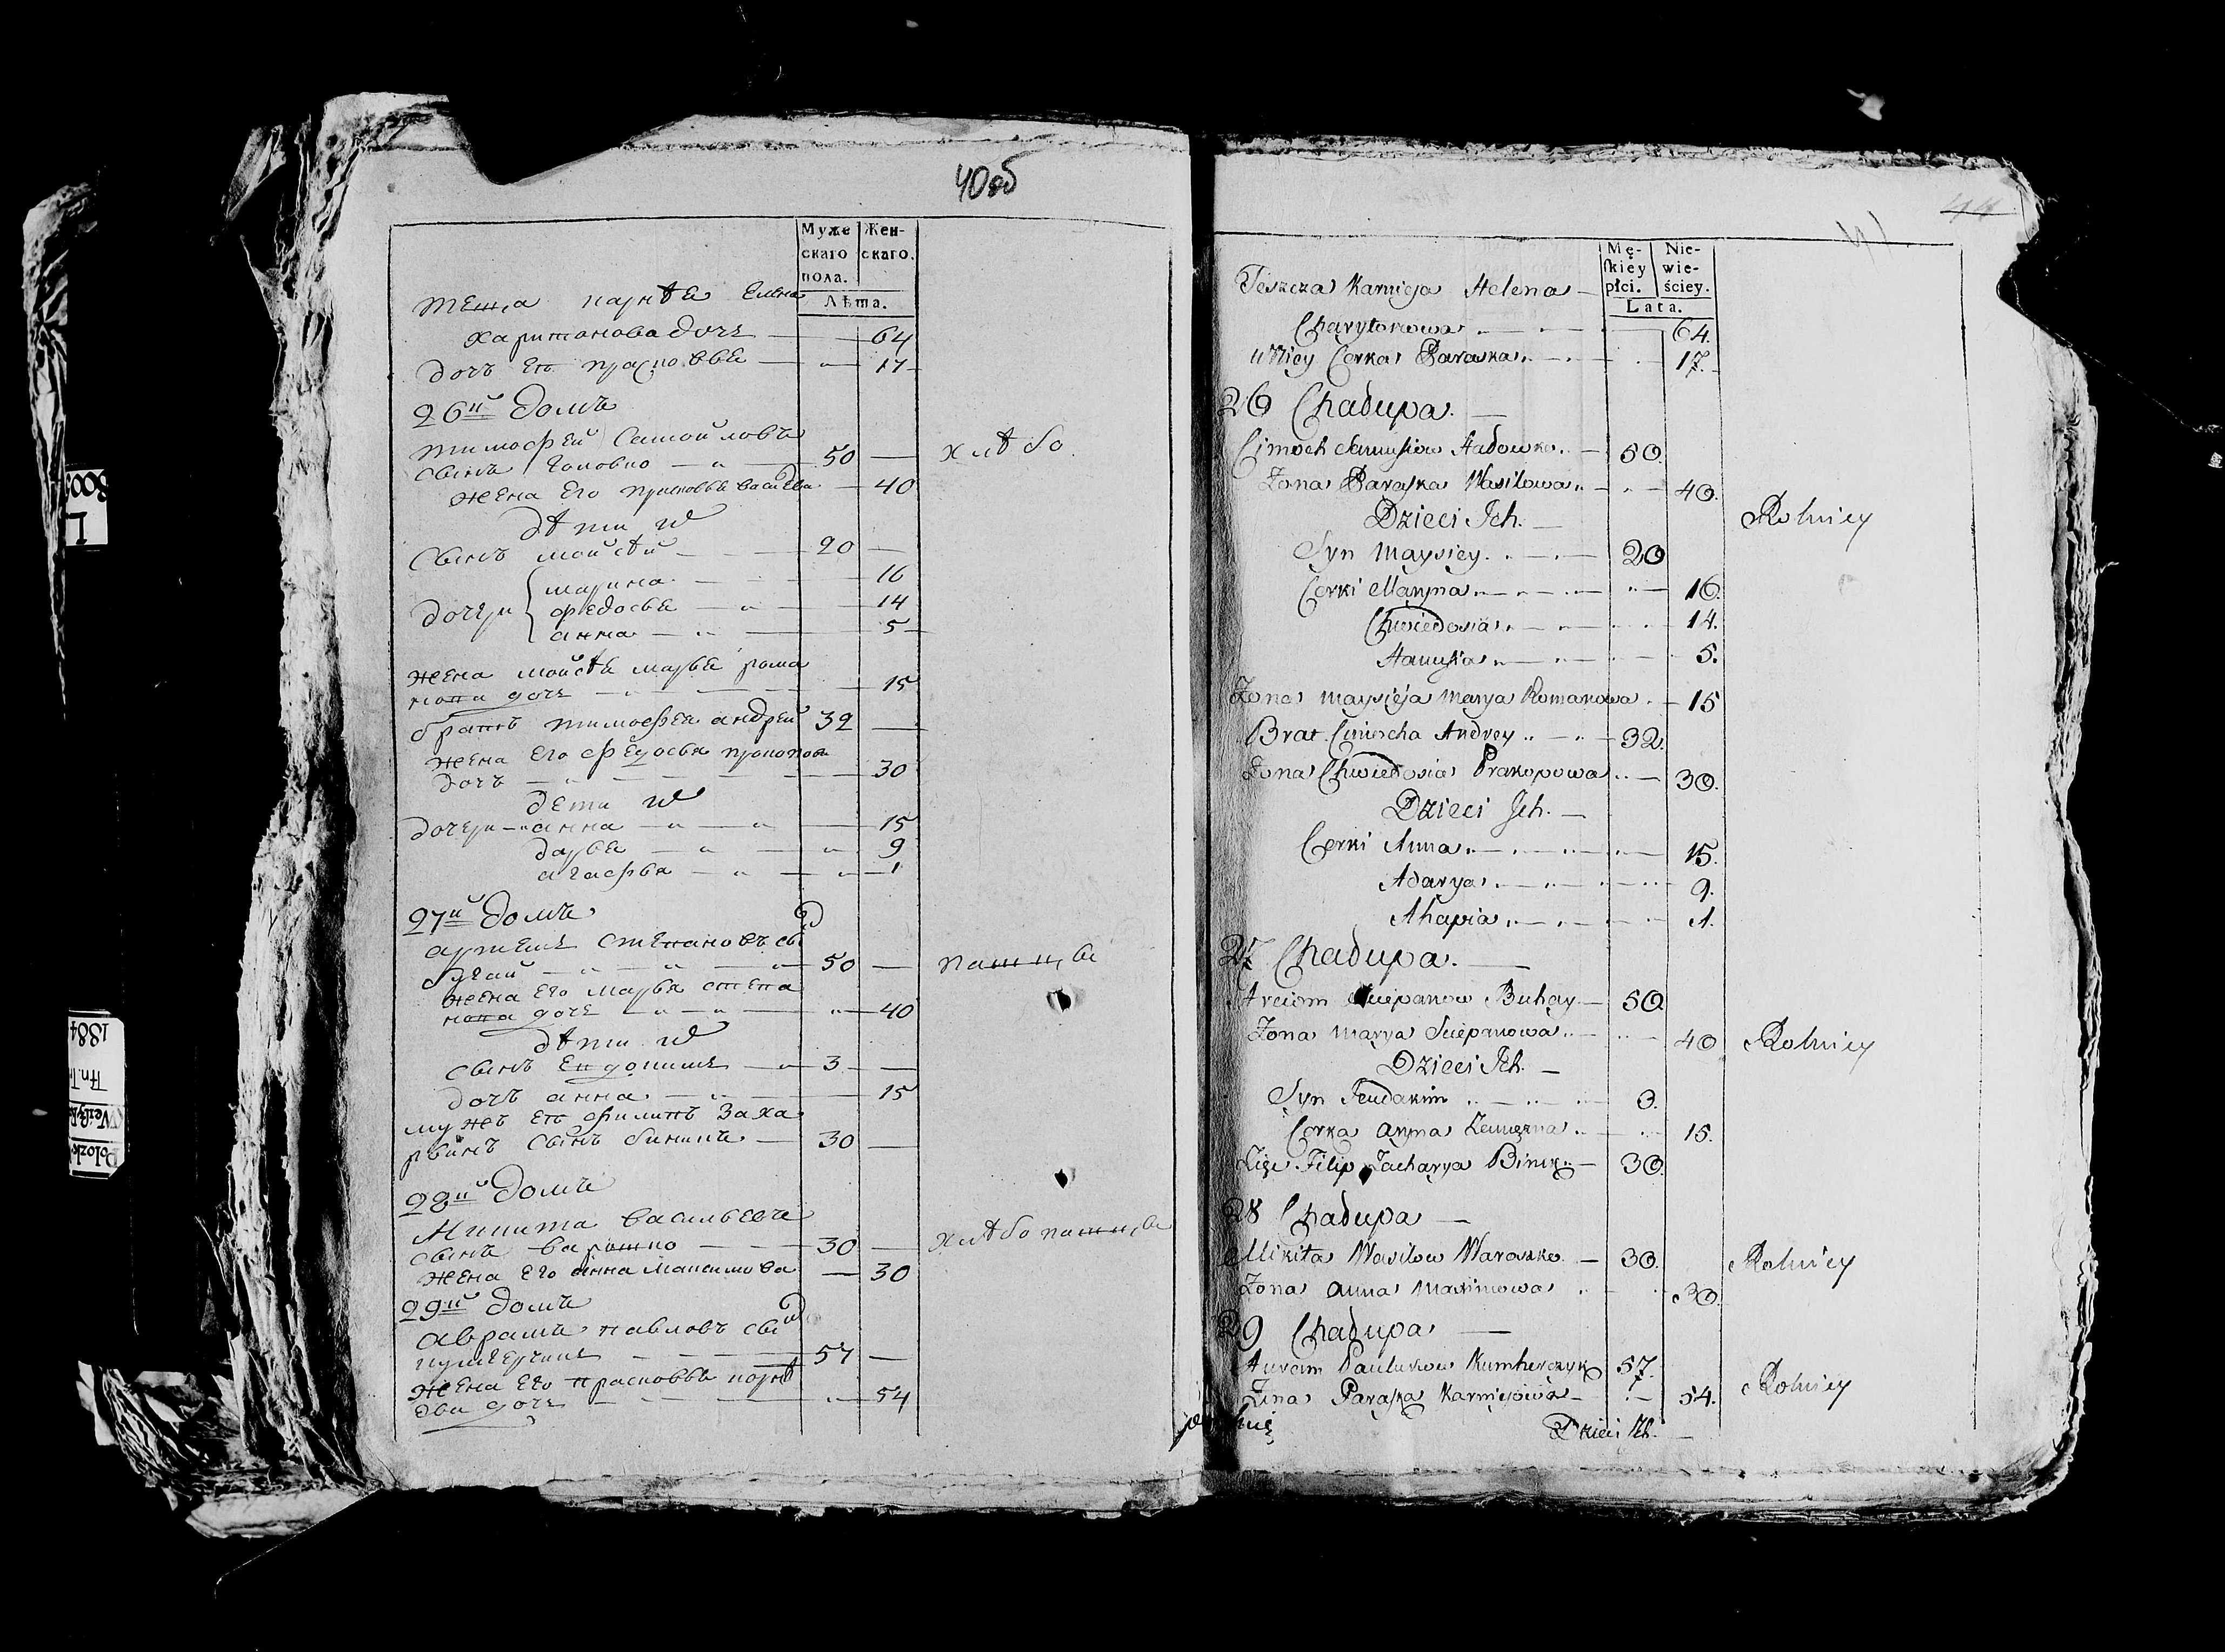 40об
Муже
скаго
пола.
Жен-
скаго.
Лѣта.
теща карнѣя Елена
харитонова дочь — 64
дочь Еѣ прасковья — 17
26й домъ
тимофей Самойловъ
сынъ головко — 50 — хлѣбо
жена Его прасковья василева — 40
дѣти их
Сынъ мойсѣй — 20 —
марина — 16
дочери федосья — 14
анна — 5
жена мойсѣя марья рома
нова дочь — 15
братъ тимофея андрей 32 —
жена Его федосья прокопова
дочь — 30
дети их
дочери — анна — 15
дарья — 9
агафья — 1
27й домъ
артемъ степановъ сы
бугай — 50 — пашица
жена Его марья степа
нова дочь — 40
дѣти их
сынъ Евдокимъ — 3 —
дочь анна — 15
мужъ Еѣ филипъ Заха
рвинъ сынъ биникъ — 30 —
28й домъ
Микита васильевъ
сынъ варашко — 30 — хлѣбопашица
жена Его анна максимова — 30
29й домъ
аврамъ павловъ сы
кумгерчикъ — 57 —
жена Его прасковья корнѣ
ева дочь — 54
44
41
Mę-
skiey
płci.
Nie-
wie-
ściey.
Lata.
Teszcza Karnieja Helena —
Charytonowa — 64.
u Niey Corka Paraska — 17.
26 Chadupa. —
Cimoch Samusiow Hadowko — 50.
Zona Paraska Wasilowa — 40.
Dzieci Ich. — Rolnicy
Syn Maysiey — 20
Corki Maryna — 16.
Chwiedosia — 14.
Hanusia — 5.
Zona Maysieja Marya Romanowa — 15
Brat Cimocha Andrey — 32.
Zona Chwiedosia Prakopowa — 30.
Dzieci Ich. —
Corki Anna — 15.
Adarya — 9.
Ahapia — 1.
27 Chadupa. —
Arciom Sciepanow Buhay — 50
Zona Marya Sciepanowa — 40 Rolnicy
Dzieci Ich. —
Syn Jeudakim — 3.
Corka Anna Zamężna — 15.
Zięć Filip Zacharya Binik — 30.
28 Chadupa —
Mikita Wasilow Waraszko — 30. Rolnicy
Zona Anna Maximowa — 30.
29 Chadupa —
Auram Paulukow Kumherczyk 57.
Zona Paraska Karniejowa — 54. Rolnicy
Dzieci Ich. —